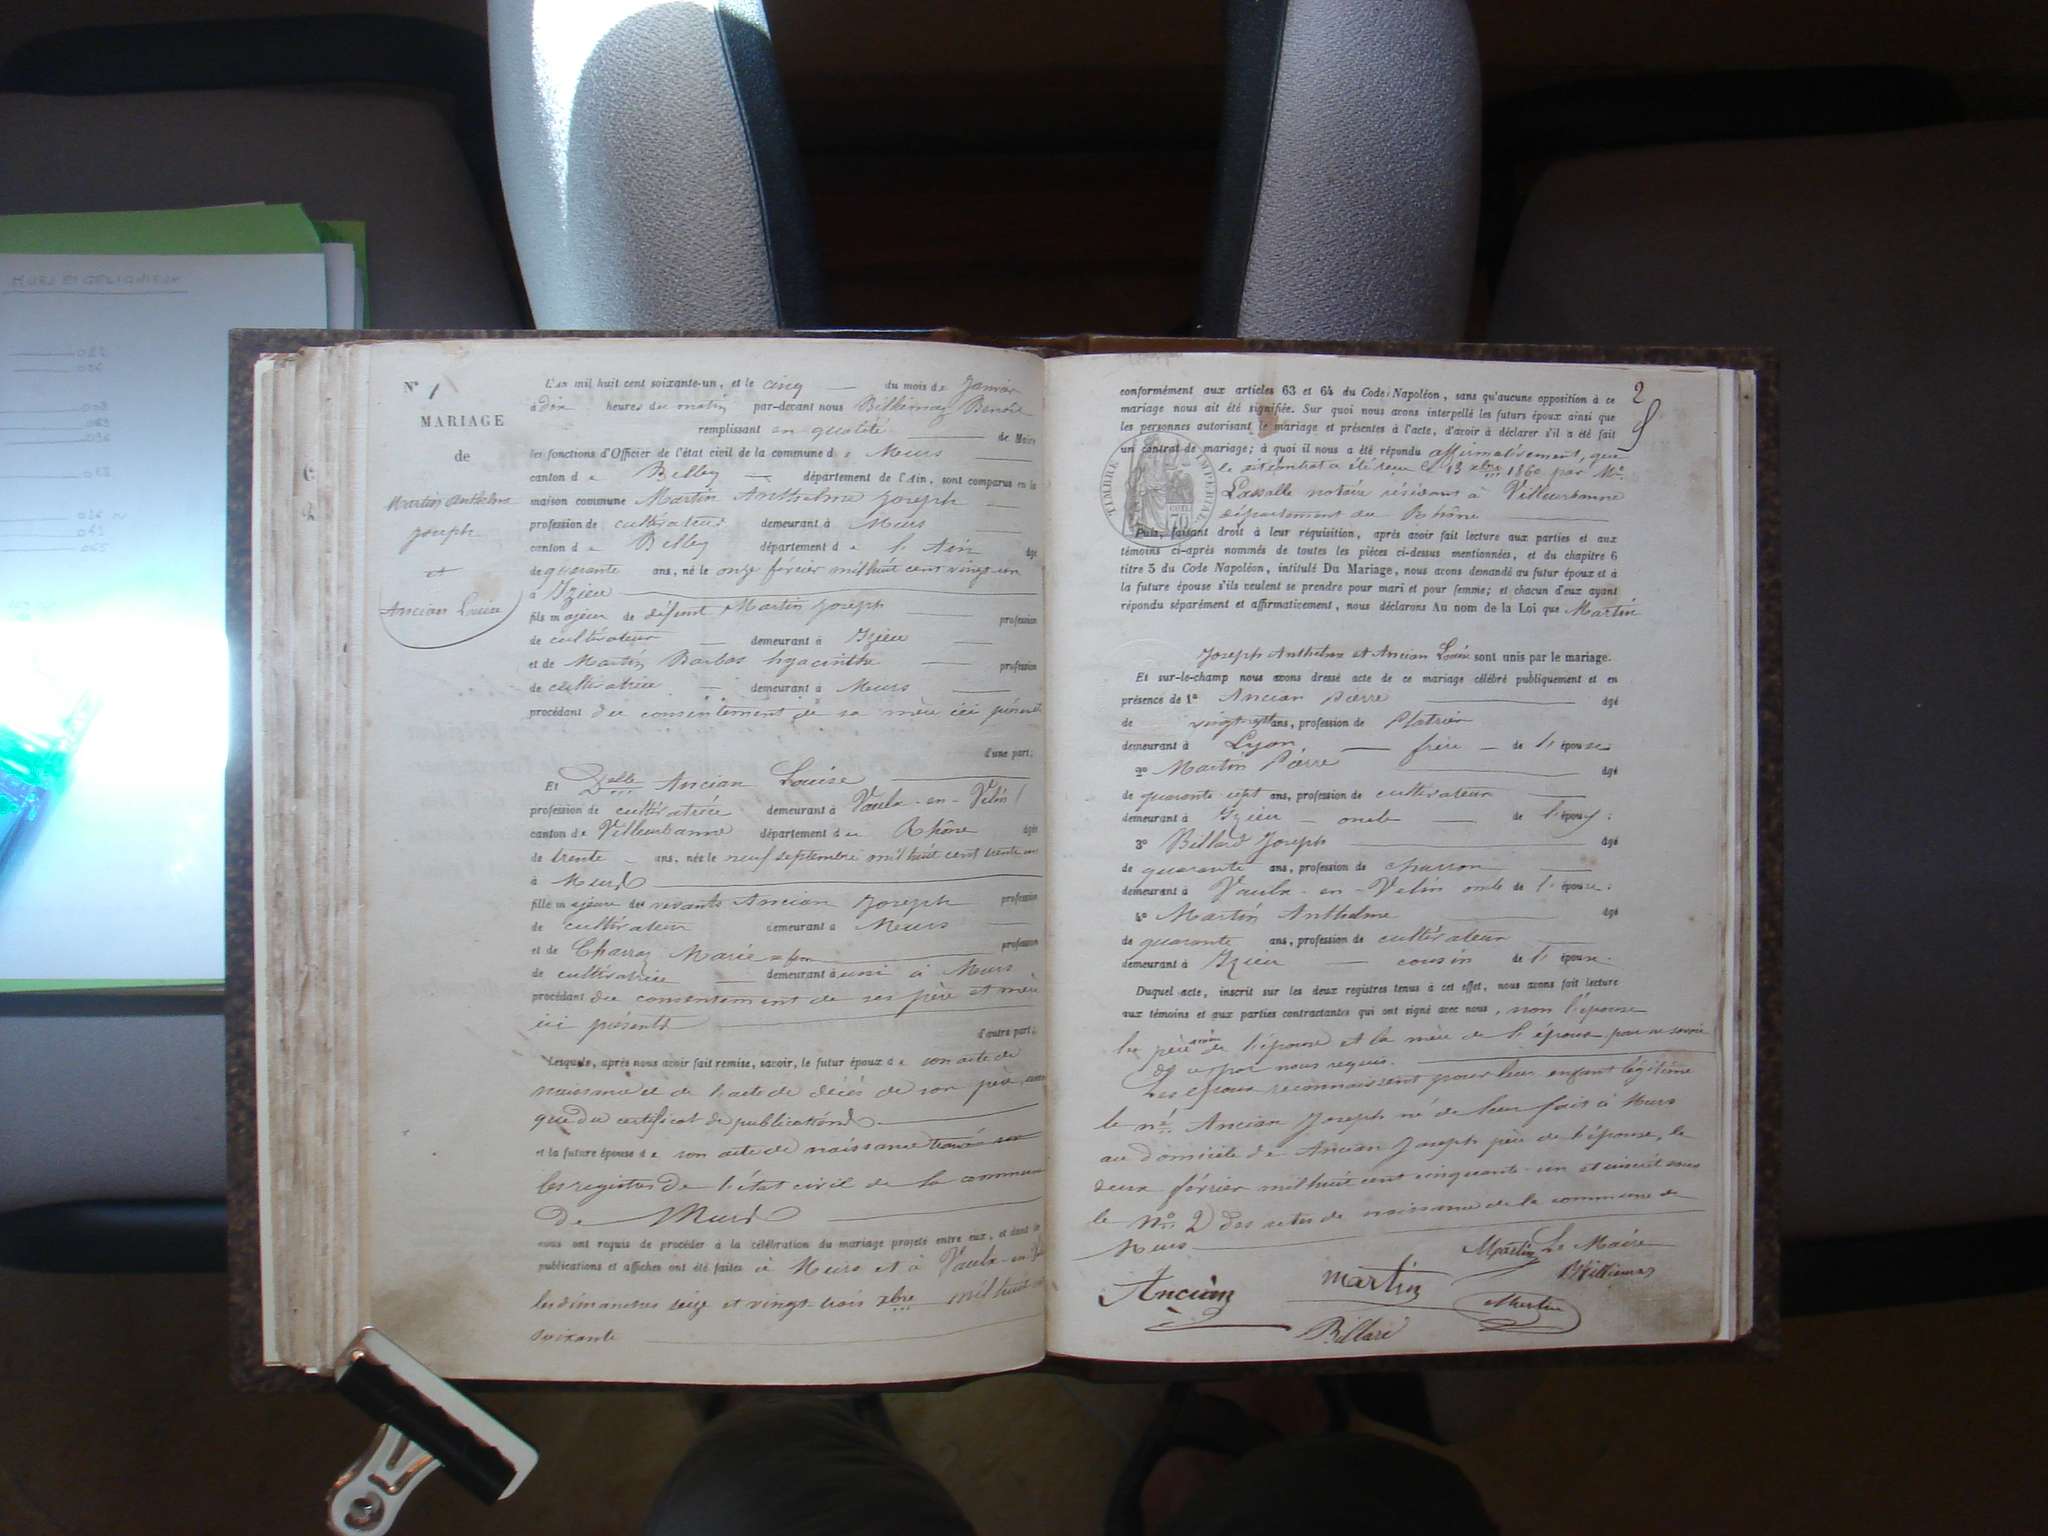 MURS ET GELIGNIEUX
N° 1
MARIAGE
de
Martin Anthelme
Joseph
et
Ancian Louise
L'an mil huit cent soixante-un, et le cinq du mois de Janvier
à dix heures du matin par-devant nous Billiemaz Benoît
remplissant en qualité de Maire
les fonctions d'Officier de l'état civil de la commune de Meurs
canton de Belley département de l'Ain, sont comparus en la
maison commune Martin Anthelme Joseph
profession de cultivateur demeurant à Meurs
canton de Belley département de l'Ain âgé
de quarante ans, né le onze fevrier mil huit cent vingt-un
à Izieu
fils majeur de défunt Martin Joseph profession
de cultivateur demeurant à Izieu
et de Martin Barbas hyacinthe profession
de cultivatrice demeurant à Meurs
procédant du consentement de sa mère ici présente
d'une part;
Et Delle Ancian Louise
profession de cultivatrice demeurant à Vaulx-en-Velin
canton de Villeurbanne département du Rhône âgée
de trente ans, née le neuf septembre mil huit cent trente un
à Meurs
fille majeure des vivants Ancian Joseph profession
de cultivateur demeurant à Meurs
et de Charroz Marie sa fem profession
de cultivatrice demeurant aussi à Meurs
procédant du consentement de ses père et mère
ici présents
d'autre part;
Lesquels, après nous avoir fait remise, savoir, le futur époux de son acte de
naissance et de l'acte de décès de son père, ainsi
que du certificat de publications
et la future épouse de son acte de naissance trouvé sur
les registres de l'état civil de la commune
de Meurs
nous ont requis de procéder à la célébration du mariage projeté entre eux, et dont les
publications et affiches ont été faites à Meurs et à Vaulx-en-Velin
les dimanches seize et vingt trois xbre mil huit cent
soixante
2
conformément aux articles 63 et 64 du Code Napoléon, sans qu'aucune opposition à ce
mariage nous ait été signifiée. Sur quoi nous avons interpellé les futurs époux ainsi que
les personnes autorisant le mariage et présentes à l'acte, d'avoir à déclarer s'il a été fait
un contrat de mariage; à quoi il nous a été répondu affirmativement, que
le dit contrat a été reçu le 13 xbre 1860 par Me
Lassalle notaire résidant à Villeurbanne
département du Rhône
TIMBRE IMPÉRIAL
70
Puis, faisant droit à leur réquisition, après avoir fait lecture aux parties et aux
témoins ci-après nommés de toutes les pièces ci-dessus mentionnées, et du chapitre 6
titre 5 du Code Napoléon, intitulé Du Mariage, nous avons demandé au futur époux et à
la future épouse s'ils veulent se prendre pour mari et pour femme; et chacun d'eux ayant
répondu séparément et affirmativement, nous déclarons Au nom de la Loi que Martin
Joseph Anthelme et Ancian Louise sont unis par le mariage.
Et sur-le-champ nous avons dressé acte de ce mariage célébré publiquement et en
présence de 1° Ancian Pierre âgé
de vingt sept ans, profession de Platrier
demeurant à Lyon frère de l'épouse
2° Martin Pierre âgé
de quarante sept ans, profession de cultivateur
demeurant à Izieu oncle de l'époux;
3° Billard Joseph âgé
de quarante ans, profession de charron
demeurant à Vaulx-en-Velin oncle de l'épouse;
4° Martin Anthelme âgé
de quarante ans, profession de cultivateur
demeurant à Izieu cousin de l'épouse.
Duquel acte, inscrit sur les deux registres tenus à cet effet, nous avons fait lecture
aux témoins et aux parties contractantes qui ont signé avec nous, non l'épouse
le père de l'épouse et la mère de l'époux pour ne savoir
de ce par nous requis.
Les époux reconnaissent pour leur enfant légitime
le né Ancian Joseph né de leur fait à Meurs
au domicile de Ancian Joseph père de l'épouse, le
deux février mil huit cent cinquante-un et inscrit sous
le N° 2 des actes de naissance de la commune de
Meurs
Martin Le Maire
Billiemaz
Ancian martin Martin
Billard